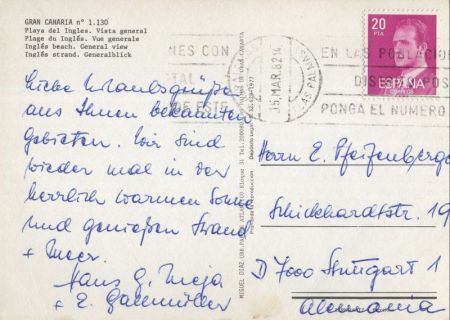 GRAN CANARIA nº 1.130
Playa del Ingles. Vista general
Plage du Inglés. Vue generale
Inglés beach. General view
Inglés strand. Generalblick
Liebe Urlaubsgrüße
aus Ihnen bekannten
gebieten. Wir sind
wieder mal in der
herrlich warmen Sonne
und genießen Strand
+ Meer.
Hans G.
+ E.
NES CON
TAL
DE ESTE
15.MAR.82 14
LAS PALMAS
EN LAS POBLACIONE
DIS POS
PONGA EL NUMERO
20
PTA
ESPAÑA
CORREOS
Herrn E. Pfeifenberger
Schickhardtstr. 19
D 7000 Stuttgart 1
Alemania